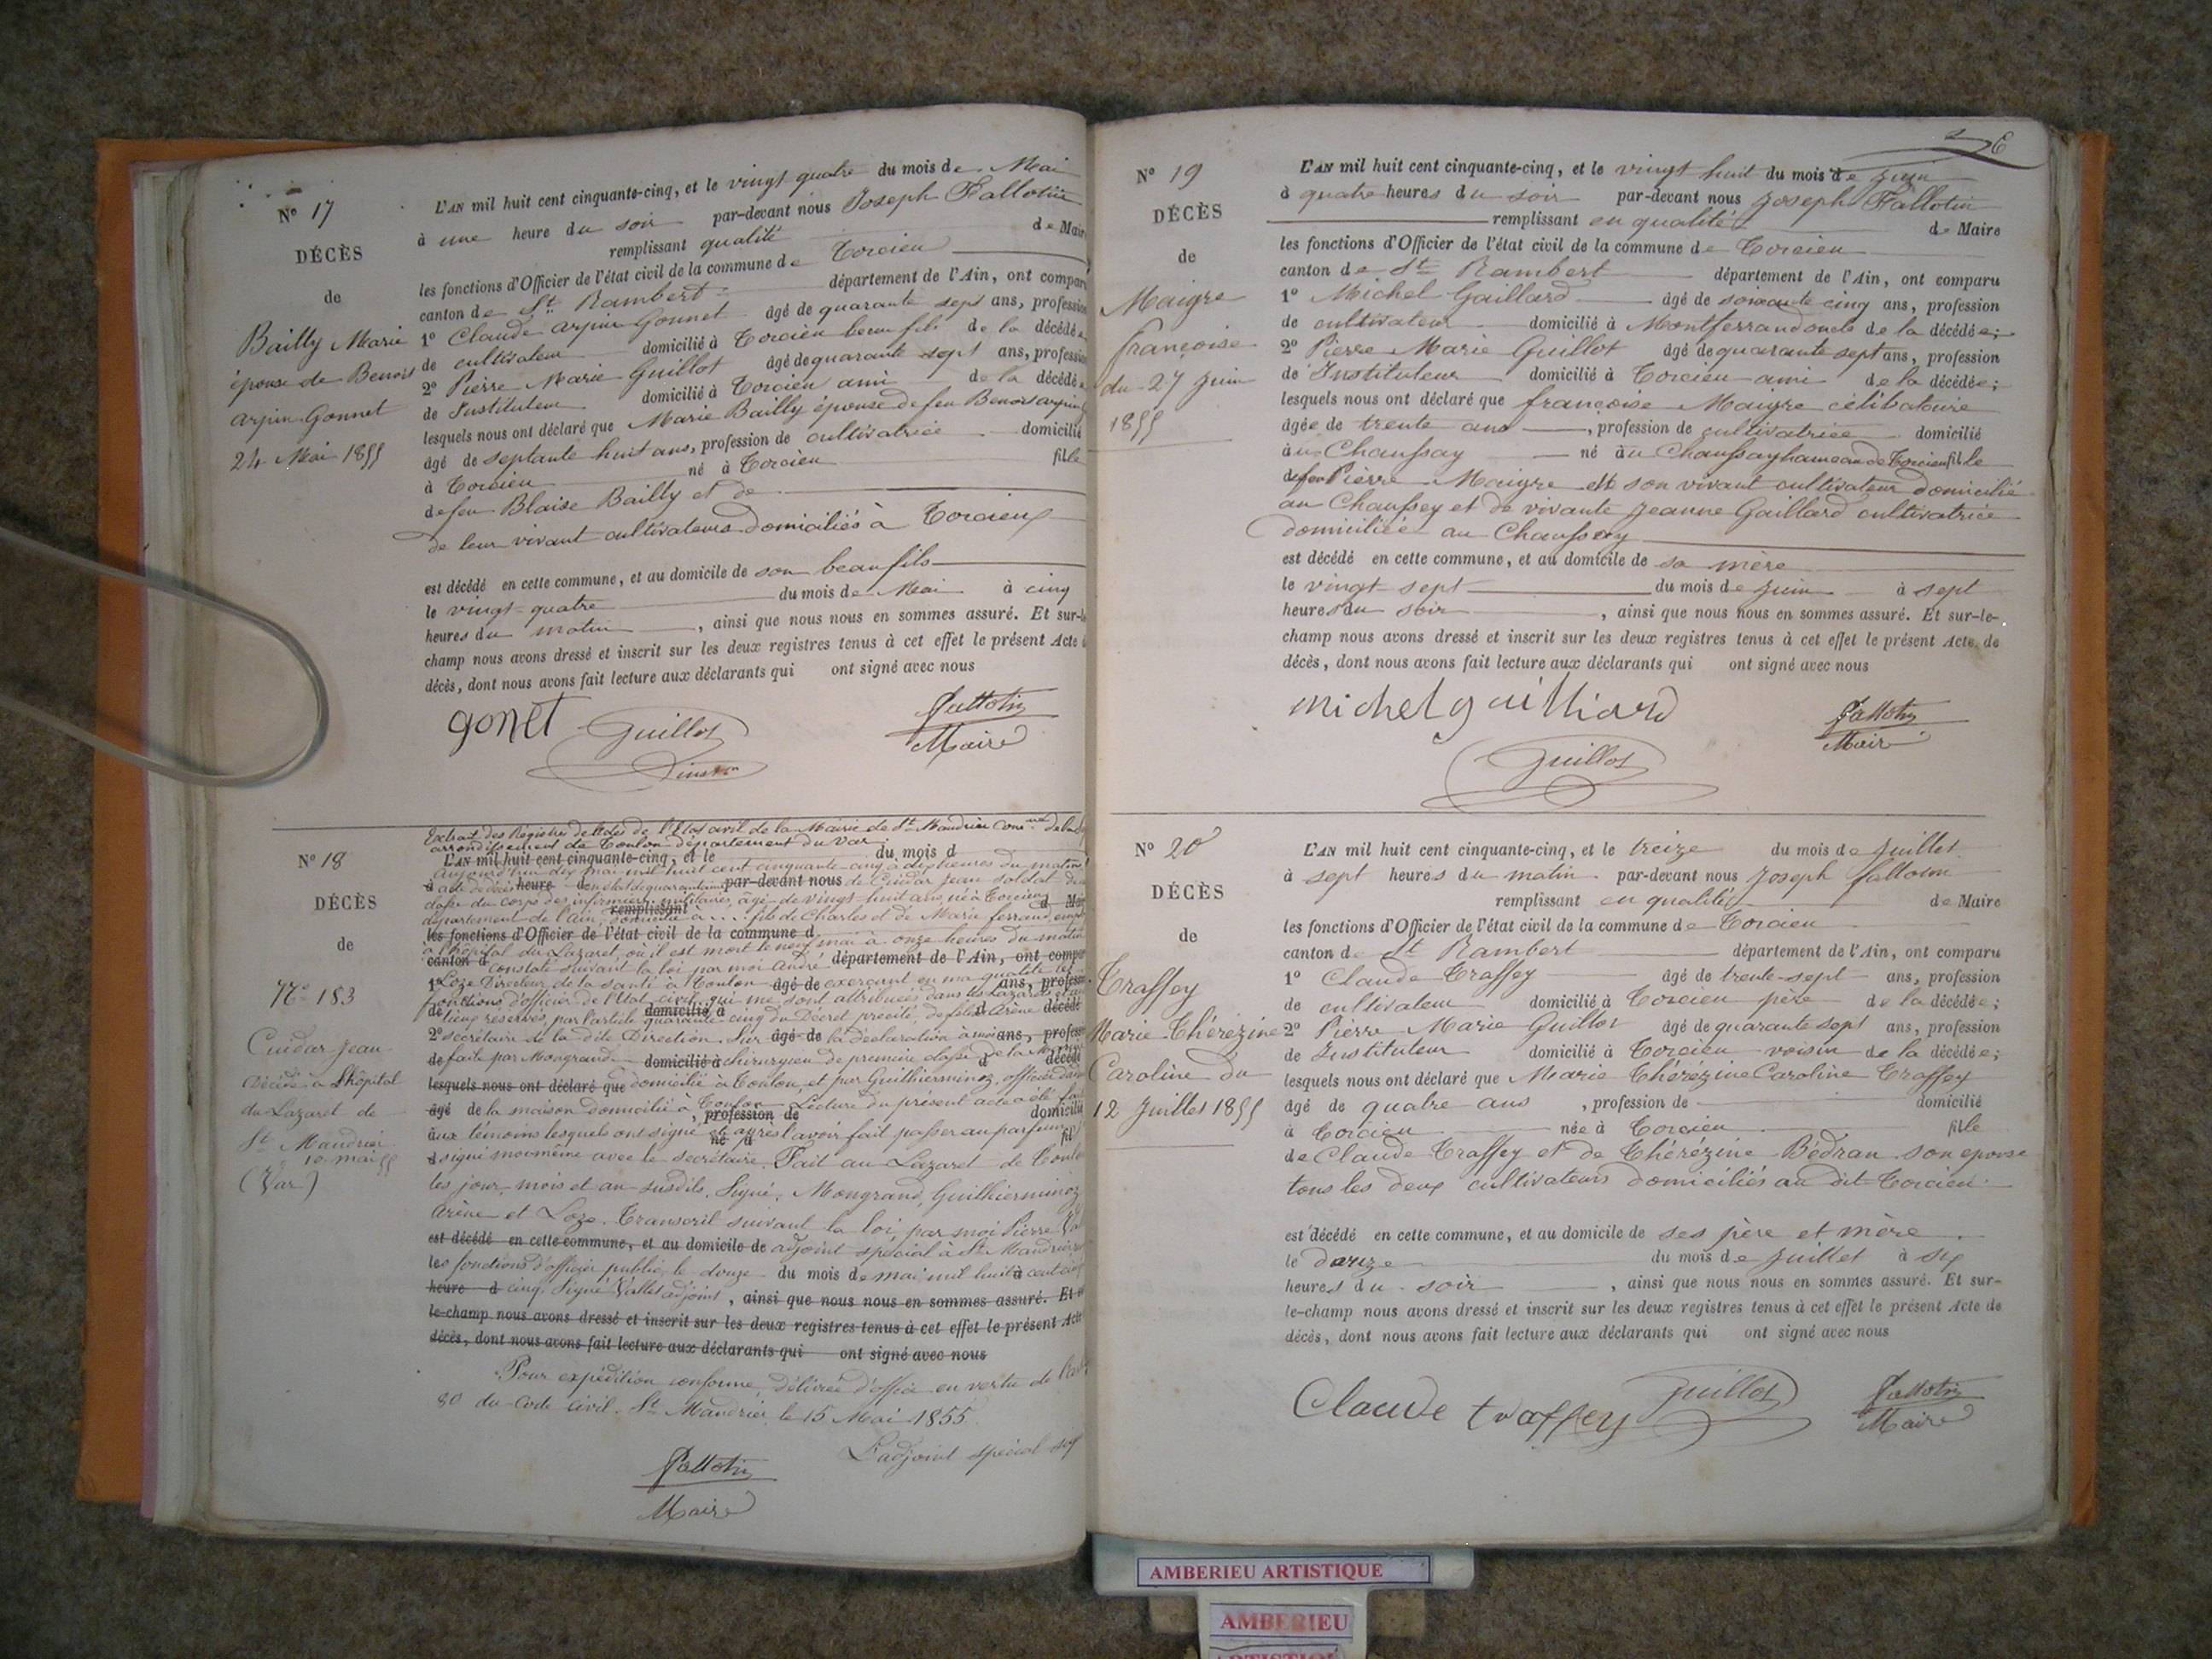 Nº 17
DÉCÈS
de
Bailly Marie
épouse de Benoit
arpin Gonnet
24 Mai 1855
L'AN mil huit cent cinquante-cinq, et le vingt quatre du mois de Mai
à une heure du soir par-devant nous Joseph Fallotin
remplissant qualité de Maire
les fonctions d'Officier de l'état civil de la commune de Torcieu
canton de St Rambert département de l'Ain, ont comparu
1º Claude arpin Gonnet âgé de quarante sept ans, profession
de cultivateur domicilié à Torcieu beau fils de la décédée
2º Pierre Marie Guillot âgé de quarante sept ans, profession
de Instituteur domicilié à Torcieu ami de la décédée
lesquels nous ont déclaré que Marie Bailly épouse de feu Benoit arpin
âgé de septante huit ans, profession de cultivatrice domicilié
à Torcieu né à Torcieu fille
de feu Blaise Bailly et de
de leur vivant cultivateurs domiciliés à Torcieu
est décédé en cette commune, et au domicile de son beau fils
le vingt-quatre du mois de Mai à cinq
heures du matin, ainsi que nous nous en sommes assuré. Et sur-le
champ nous avons dressé et inscrit sur les deux registres tenus à cet effet le présent Acte
décès, dont nous avons fait lecture aux déclarants qui ont signé avec nous
gonet Guillot Fallotin
Maire
Nº 18
DÉCÈS
de
Nº 183
Cuidar Jean
Décédé à l'hôpital
du Lazaret de
St Mandrier
10 mai 55
(Var)
Extrait des Registres de l'Etat civil de la Mairie de St Mandrier
arrondissement de Toulon département du Var
L'AN mil huit cent cinquante-cinq, et le du mois d
Aujourd'hui dix mai mil huit cent cinquante cinq à dix heures du matin
à acte de décès heure d par-devant nous de Cuidar Jean soldat de
classe du corps des infirmiers militaires, âgé de vingt huit ans, né à Torcieu
remplissant
département de l'ain, domicilié à ... fils de Charles et de Marie ferrand
les fonctions d'Officier de l'état civil de la commune d
à l'hôpital du Lazaret, où il est mort le neuf mai à onze heures du matin
canton d département de l'Ain, ont comparu
constaté suivant la loi par moi André
1º Loze Directeur de la santé à Toulon âgé de exerçant en ma qualité les ans, profession
fonctions d'officier de l'Etat civil qui me sont attribuées dans les Lazarets
de domicilié à décédé
lieux réservés, par l'article quarante cinq du Décret précité, Arène
2º secrétaire de la dite Direction. Sur âgé de la déclaration à moi ans, profession
de faite par Mongrand domicilié à chirurgien de première classe de la Marine décédé
lesquels nous ont déclaré que domicilié à Toulon, et par Guilhierminoz, officier
âgé de la maison domicilié à Toulon Lecture du présent acte a été faite
, profession de domicilié
aux témoins lesquels ont signé et après l'avoir fait passer au parfum
né à fil
signé moi-même avec le secrétaire. Fait au Lazaret de Toulon
les jour, mois et an susdits. Signé, Mongrand, Guilhierminoz
Arène et Loze. Transcrit suivant la loi, par moi Pierre
est décédé en cette commune, et au domicile de adjoint spécial à St Mandrier
les fonctions d'officier public, le douze du mois de mai mil huit à cent
heure d cinq. Signé Vallet adjoint, ainsi que nous nous en sommes assuré. Et
le-champ nous avons dressé et inscrit sur les deux registres tenus à cet effet le présent Acte
décès, dont nous avons fait lecture aux déclarants qui ont signé avec nous
Pour expédition conforme, délivrée d'office en vertu de l'art
80 du Code Civil. St Mandrier le 15 Mai 1855
L'adjoint spécial
Fallotin
Maire
6
Nº 19
DÉCÈS
de
Maigre
françoise
du 27 Juin
1855
L'AN mil huit cent cinquante-cinq, et le vingt huit du mois de Juin
à quatre heures du soir par-devant nous Joseph Fallotin
remplissant en qualité de Maire
les fonctions d'Officier de l'état civil de la commune de Torcieu
canton de St Rambert département de l'Ain, ont comparu
1º Michel Gaillard âgé de soixante cinq ans, profession
de cultivateur domicilié à Montferrand oncle de la décédée;
2º Pierre Marie Guillot âgé de quarante sept ans, profession
de Instituteur domicilié à Torcieu ami de la décédée;
lesquels nous ont déclaré que françoise Maigre célibataire
âgée de trente ans, profession de cultivatrice domicilié
au Chaussay né au Chaussay hameau de Torcieu fille
de feu Pierre Maigre en son vivant cultivateur domicilié
au Chaussey et de vivante Jeanne Gaillard cultivatrice
domiciliée au Chaussey
est décédé en cette commune, et au domicile de sa mère
le vingt-sept du mois de Juin à sept
heures du soir, ainsi que nous nous en sommes assuré. Et sur-le-
champ nous avons dressé et inscrit sur les deux registres tenus à cet effet le présent Acte de
décès, dont nous avons fait lecture aux déclarants qui ont signé avec nous
michel guilliard Fallotin
Guillot Maire
Nº 20
DÉCÈS
de
Traffey
Marie Thérézine
Caroline du
12 Juillet 1855
L'AN mil huit cent cinquante-cinq, et le treize du mois de Juillet
à sept heures du matin par-devant nous Joseph fallotin
remplissant en qualité de Maire
les fonctions d'Officier de l'état civil de la commune de Torcieu
canton de St Rambert département de l'Ain, ont comparu
1º Claude Traffey âgé de trente-sept ans, profession
de cultivateur domicilié à Torcieu père de la décédée;
2º Pierre Marie Guillot âgé de quarante sept ans, profession
de Instituteur domicilié à Torcieu voisin de la décédée;
lesquels nous ont déclaré que Marie Thérézine Caroline Traffey
âgé de quatre ans, profession de domicilié
à Torcieu née à Torcieu fille
de Claude Traffey et de Thérézine Bédran son epouse
tous les deux cultivateurs domiciliés au dit Torcieu
est décédé en cette commune, et au domicile de ses père et mère
le douze du mois de Juillet à six
heures du soir, ainsi que nous nous en sommes assuré. Et sur-
le-champ nous avons dressé et inscrit sur les deux registres tenus à cet effet le présent Acte de
décès, dont nous avons fait lecture aux déclarants qui ont signé avec nous
Claude traffey Guillot Fallotin
Maire
AMBERIEU ARTISTIQUE
AMBERIEU
ARTISTIQUE